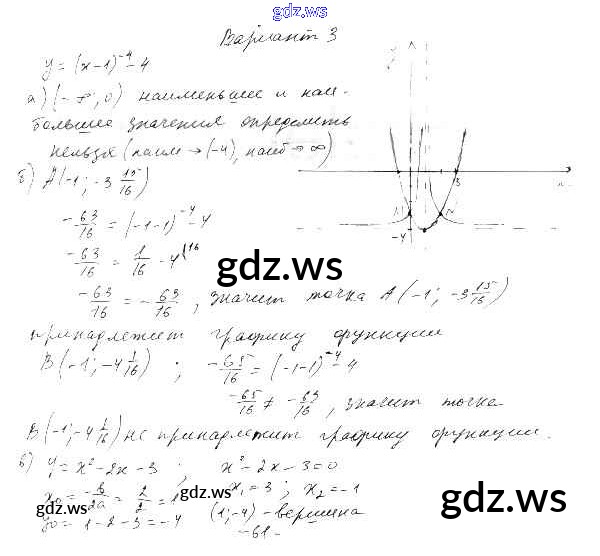 gdz.ws
Вариант 3
y = (x-1)⁻⁴ - 4
а) (-∞; 0) наименьшее и наи-
большее значения определить
нельзя (наим → (-4), наиб → ∞)
б) A(-1; -3 15/16)
-63/16 = (-1-1)⁻⁴ - 4
-63/16 = 1/16 - 4
-63/16 = -63/16, значит точка A(-1; -3 15/16)
принадлежит графику функции
B(-1; -4 1/16) ; -65/16 = (-1-1)⁻⁴ - 4
-65/16 ≠ -63/16, значит точка
B(-1; -4 1/16) не принадлежит графику функции.
в) y = x² - 2x - 3 ; x² - 2x - 3 = 0
x₀ = -b/2a = 2/2 = 1 x₁ = 3 ; x₂ = -1
y₀ = 1 - 2 - 3 = -4 (1; -4) - вершина
-61-
1
3
-4
gdz.ws
gdz.ws
gdz.ws
gdz.ws